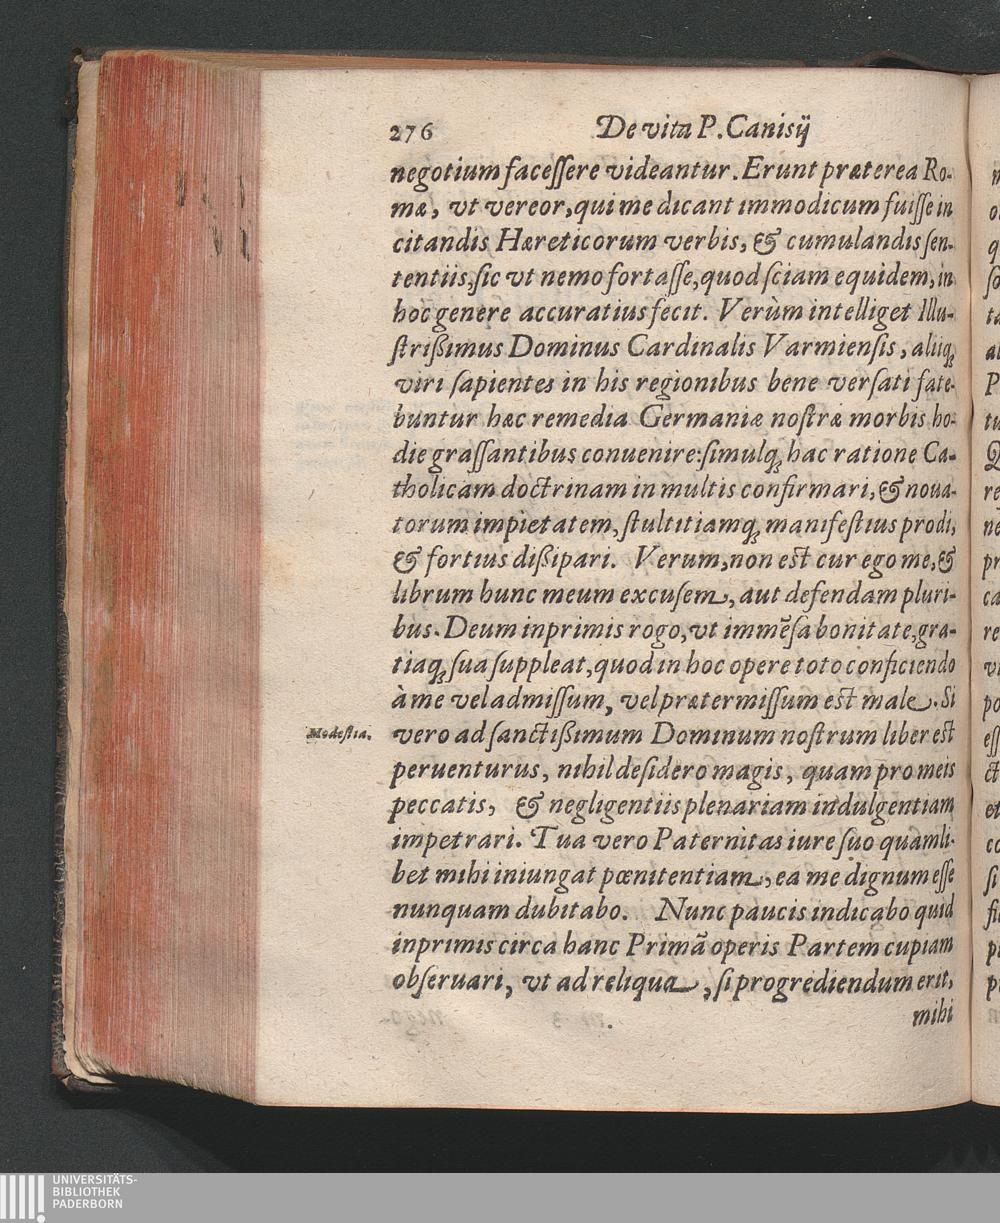 276 De vita P. Canisij
negotium facessere videantur. Erunt præterea Ro-
mæ, vt vereor, qui me dicant immodicum fuisse in
citandis Hæreticorum verbis, & cumulandis sen-
tentiis, sic vt nemo fortasse, quod sciam equidem, in
hoc genere accuratius fecit. Verùm intelliget Illu-
strißimus Dominus Cardinalis Varmiensis, aliiq;
viri sapientes in his regionibus bene versati fate-
buntur hæc remedia Germaniæ nostræ morbis ho-
die grassantibus conuenire: simulq; hac ratione Ca-
tholicam doctrinam in multis confirmari, & noua-
torum impietatem, stultitiamq; manifestius prodi,
& fortius dißipari. Verum, non est cur ego me, &
librum hunc meum excusem, aut defendam pluri-
bus. Deum inprimis rogo, vt immēsa bonitate, gra-
tiaq; sua suppleat, quod in hoc opere toto conficiendo
à me vel admissum, vel prætermissum est male. Si
Modestia.
vero ad sanctißimum Dominum nostrum liber est
peruenturus, nihil desidero magis, quam pro meis
peccatis, & negligentiis plenariam indulgentiam
impetrari. Tua vero Paternitas iure suo quamli-
bet mihi iniungat pœnitentiam, ea me dignum esse
nunquam dubitabo. Nunc paucis indicabo quid
inprimis circa hanc Primā operis Partem cupiam
obseruari, vt ad reliqua, si progrediendum erit,
mihi
UNIVERSITÄTS-
BIBLIOTHEK
PADERBORN